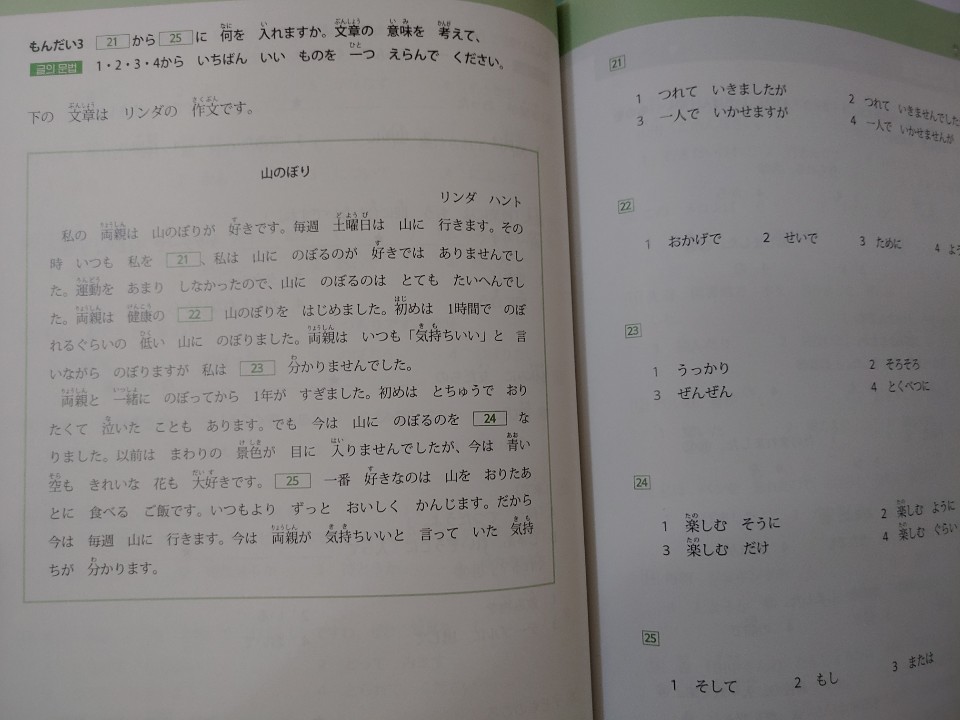 もんだい3 21 から 25 に 何を 入れますか。文章の 意味を 考えて、
글의 문법 1・2・3・4から いちばん いい ものを 一つ えらんで ください。
下の 文章は リンダの 作文です。
山のぼり
リンダ ハント
私の 両親は 山のぼりが 好きです。毎週 土曜日は 山に 行きます。その
時 いつも 私を 21 、私は 山に のぼるのが 好きでは ありませんでし
た。運動を あまり しなかったので、山に のぼるのは とても たいへんでし
た。両親は 健康の 22 山のぼりを はじめました。初めは 1時間で のぼ
れるぐらいの 低い 山に のぼりました。両親は いつも「気持ちいい」と 言
いながら のぼりますが 私は 23 分かりませんでした。
両親と 一緒に のぼってから 1年が すぎました。初めは とちゅうで おり
たくて 泣いた ことも あります。でも 今は 山に のぼるのを 24 な
りました。以前は まわりの 景色が 目に 入りませんでしたが、今は 青い
空も きれいな 花も 大好きです。 25 一番 好きなのは 山を おりたあ
とに 食べる ご飯です。いつもより ずっと おいしく かんじます。だから
今は 毎週 山に 行きます。今は 両親が 気持ちいいと 言って いた 気持
ちが 分かります。
21
1 つれて いきましたが
2 つれて いきませんでした
3 一人で いかせますが
4 一人で いかせませんが
22
1 おかげで 2 せいで 3 ために 4
23
1 うっかり 2 そろそろ
3 ぜんぜん 4 とくべつに
24
1 楽しむ そうに 2 楽しむ ように
3 楽しむ だけ 4 楽しむ ぐらい
25
1 そして 2 もし 3 または